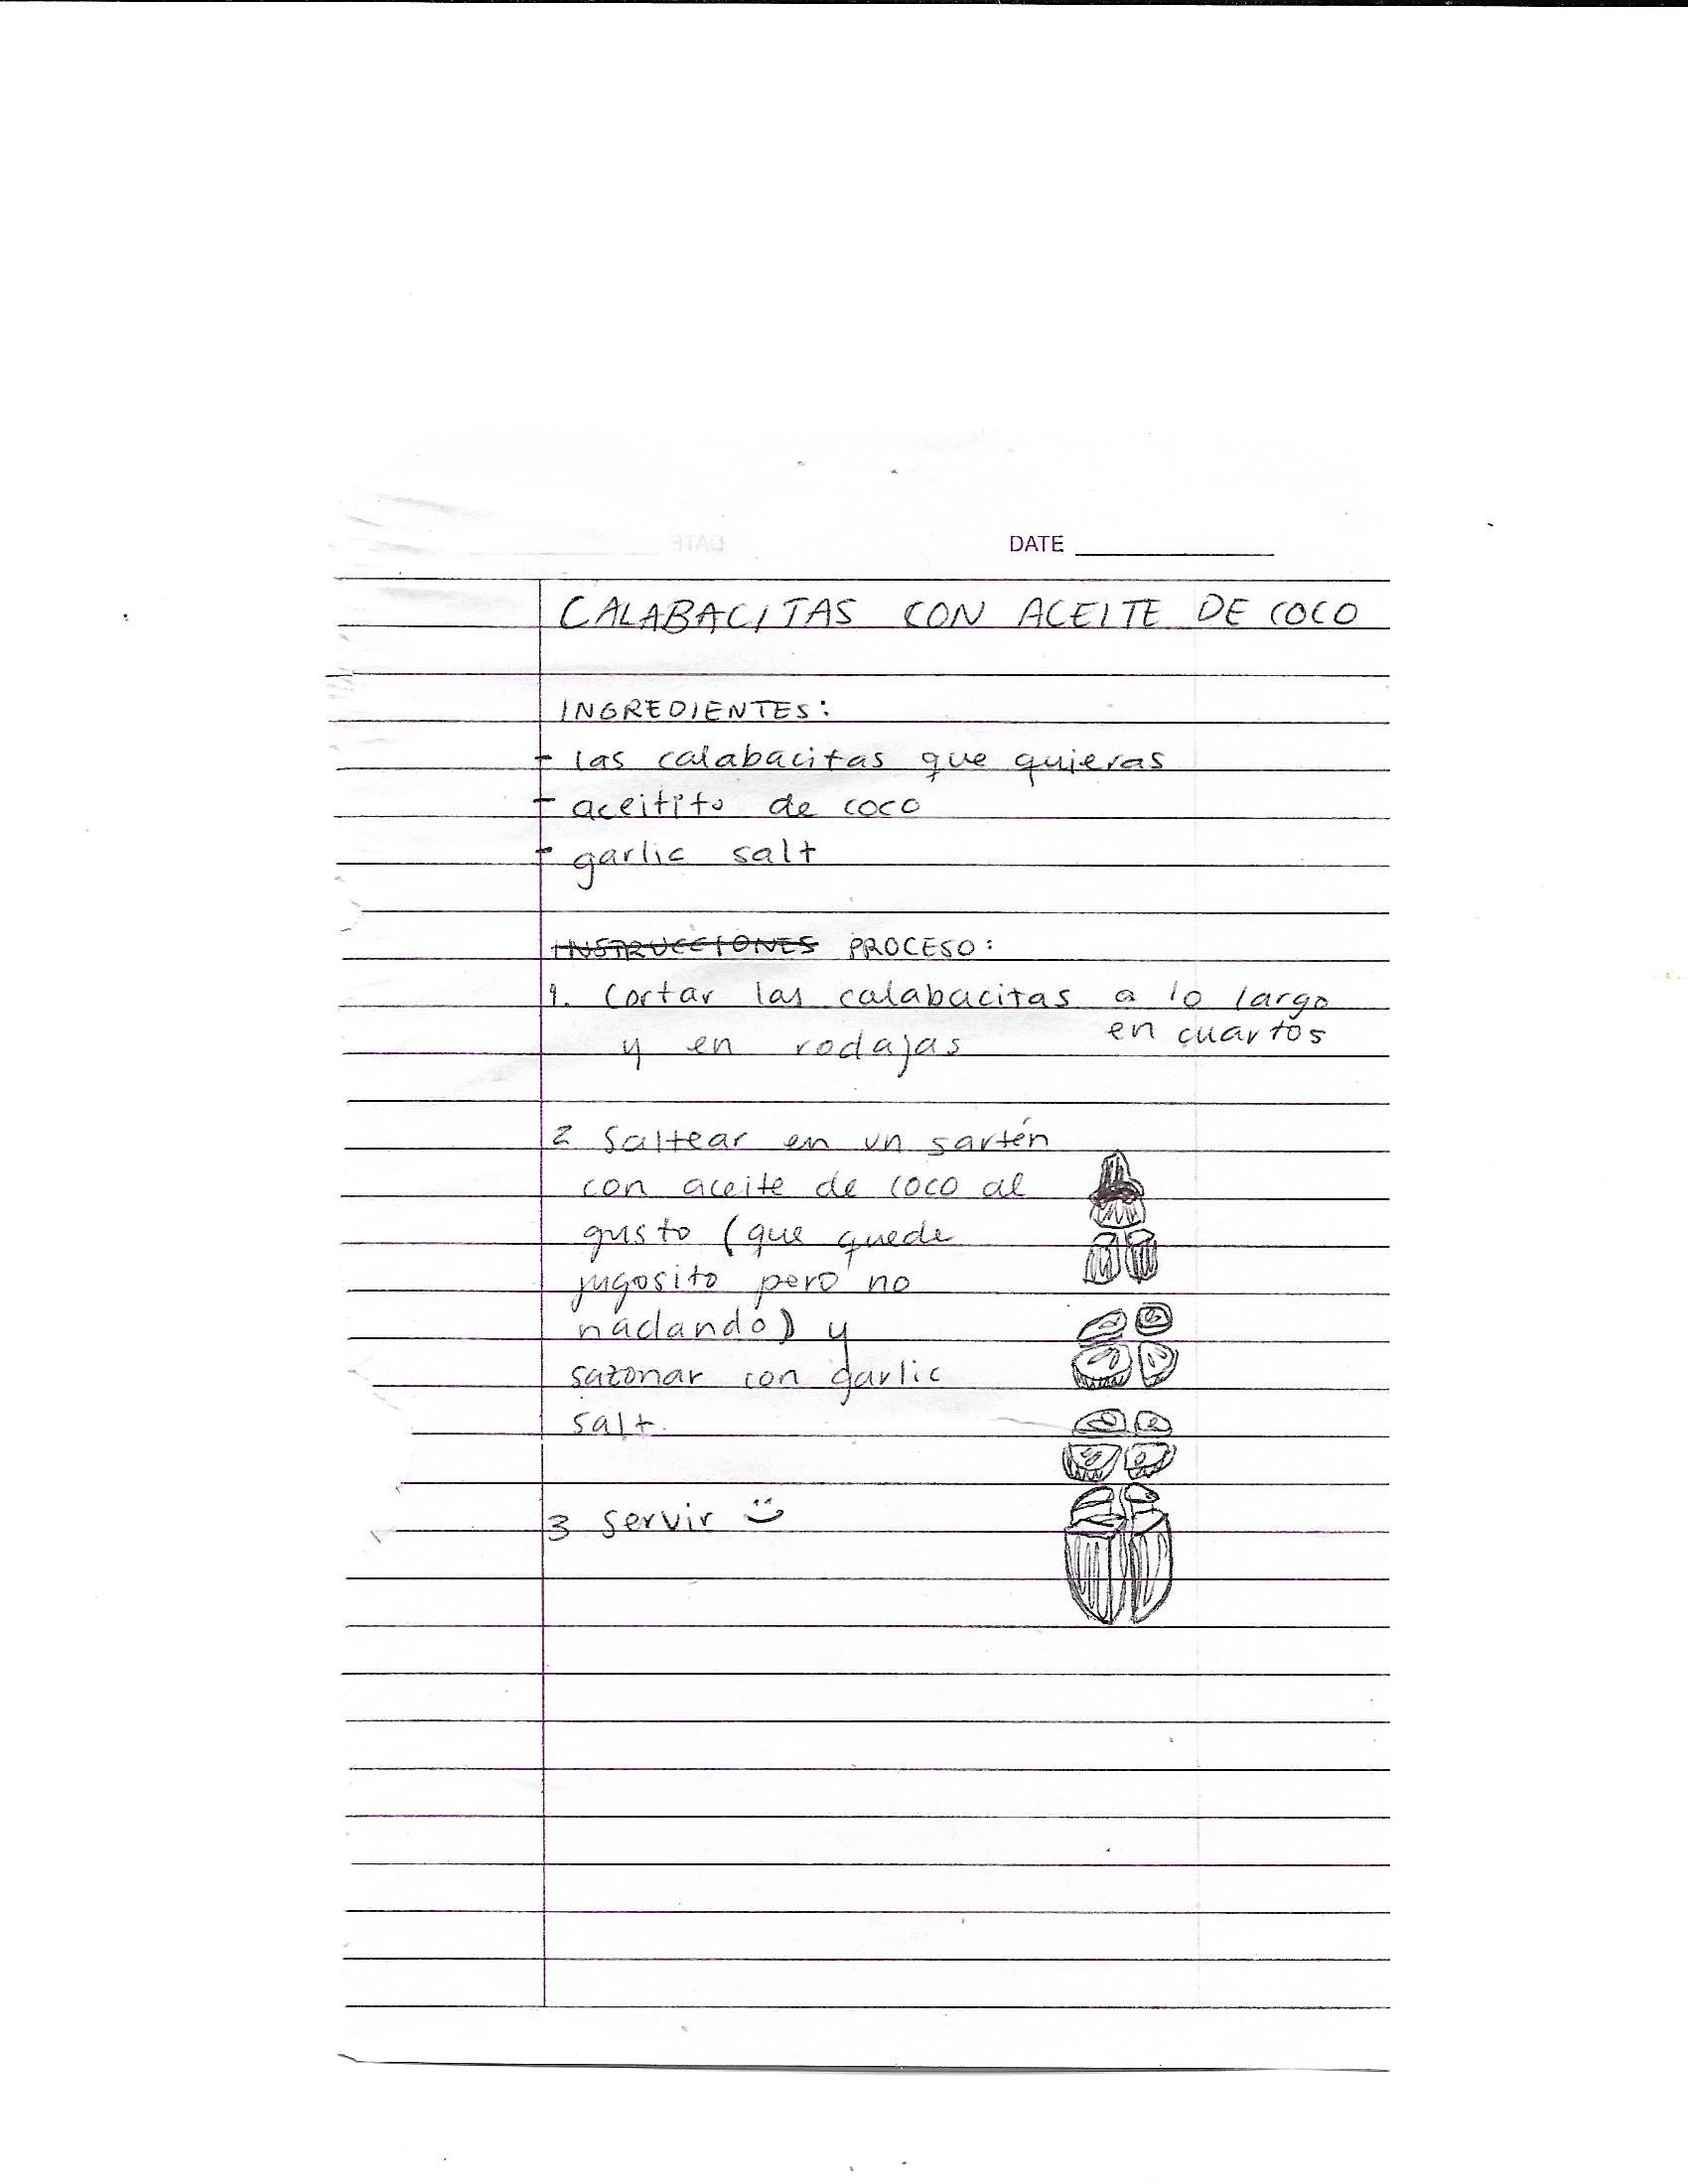 DATE
CALABACITAS CON ACEITE DE COCO
INGREDIENTES:
- las calabacitas que quieras
- aceitito de coco
- garlic salt
INSTRUCCIONES PROCESO:
1. Cortar las calabacitas a lo largo
en cuartos
y en rodajas
2 Saltear en un sartén
con aceite de coco al
gusto (que quede
jugosito pero no
nadando) y
sazonar con garlic
salt.
3 servir